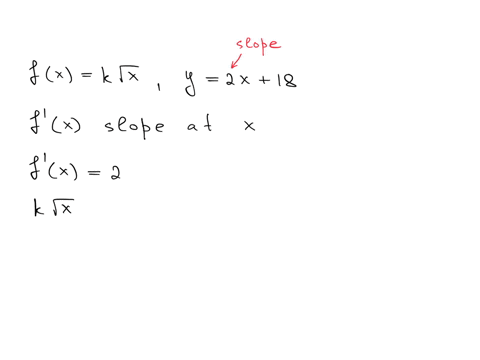 slope
f(x) = k√x , y = 2x + 18
f'(x) slope at x
f'(x) = 2
k√x